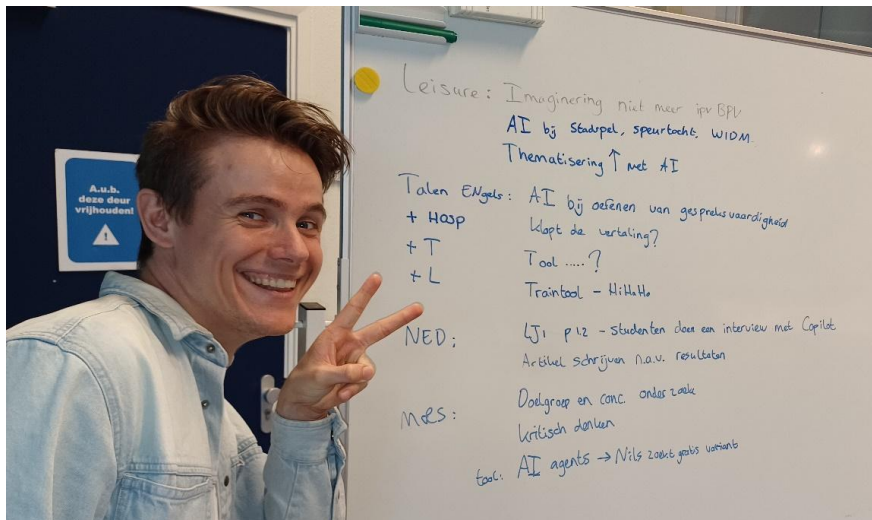 A.u.b.
deze deur
vrijhouden!
Leisure: Imaginering niet meer ipv BPV
AI bij Stadspel, speurtocht, WIDM
Thematisering ↑ met AI
Talen ENgels: AI bij oefenen van gespreksvaardigheid
+ Hosp Klopt de vertaling?
+ T Tool .....?
+ L Traintool - HiHaHo
NED: LJ1 p12 - Studenten doen een interview met Copilot
Artikel schrijven n.a.v. resultaten
Doelgroep en conc. onderzoek
MRS: kritisch denken
tool: AI agents → Nils zoekt gratis variant